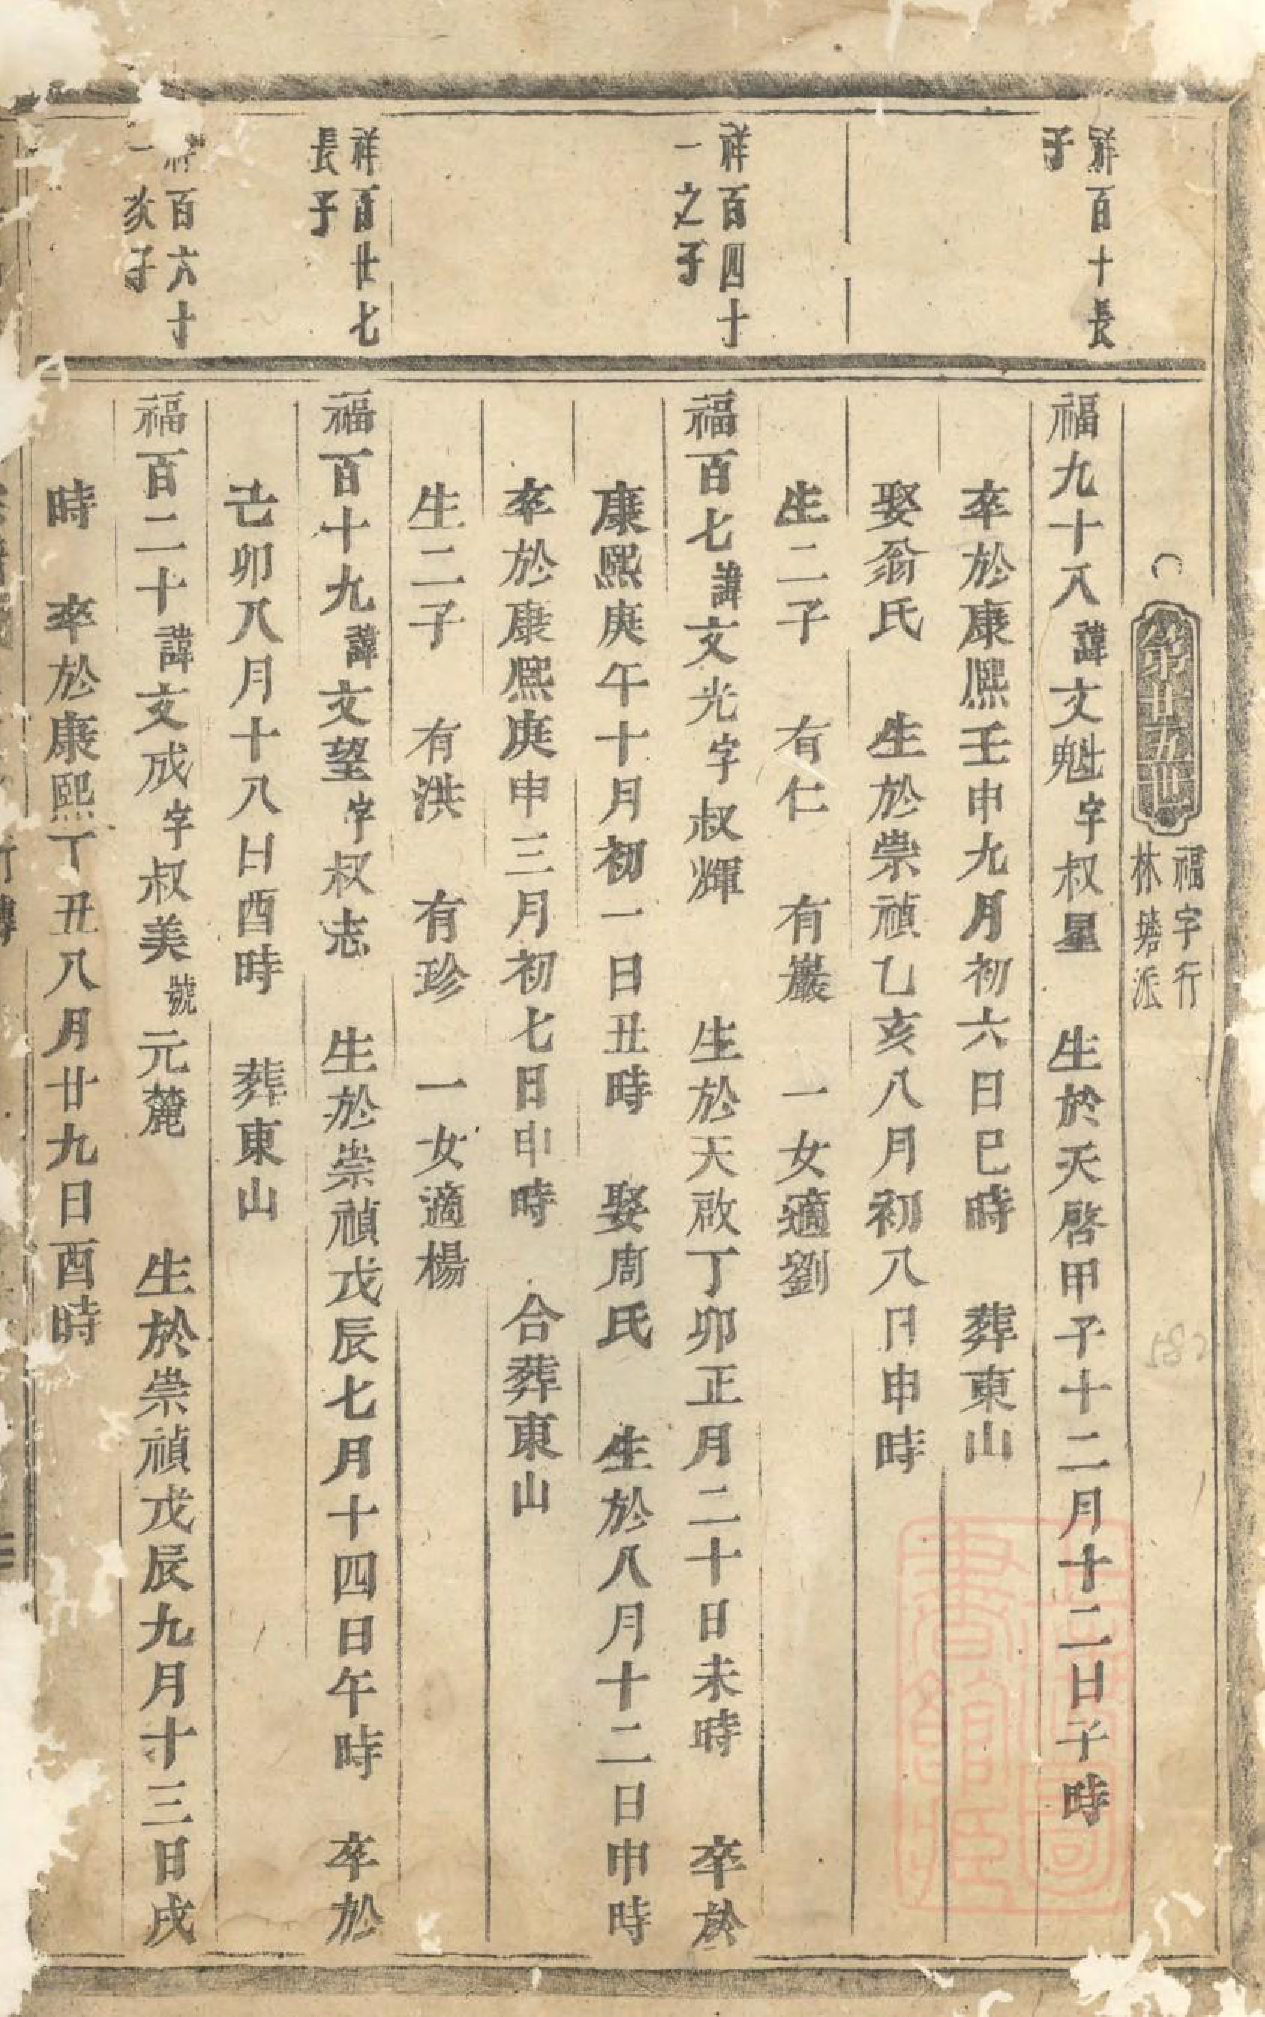 第廿五世
福字行
林塘派
祥百十長
子
福九十八諱文魁字叔星 生於天啓甲子十二月十二日子時
卒於康熙壬申九月初六日巳時 葬東山
娶翁氏 生於崇禎乙亥八月初八日申時
生二子 有仁 有巖 一女適劉
祥百四十
一之子
福百七諱文光字叔輝 生於天啟丁卯正月二十日未時 卒於
康熙庚午十月初一日丑時 娶周氏 生於八月十二日申時
卒於康熙庚申三月初七日申時 合葬東山
生二子 有洪 有珍 一女適楊
祥百廿七
長子
福百十九諱文望字叔志 生於崇禎戊辰七月十四日午時 卒於
己卯八月十八日酉時 葬東山
祥百六十
一次子
福百二十諱文成字叔美號元麓 生於崇禎戊辰九月十三日戌
時 卒於康熙丁丑八月廿九日酉時